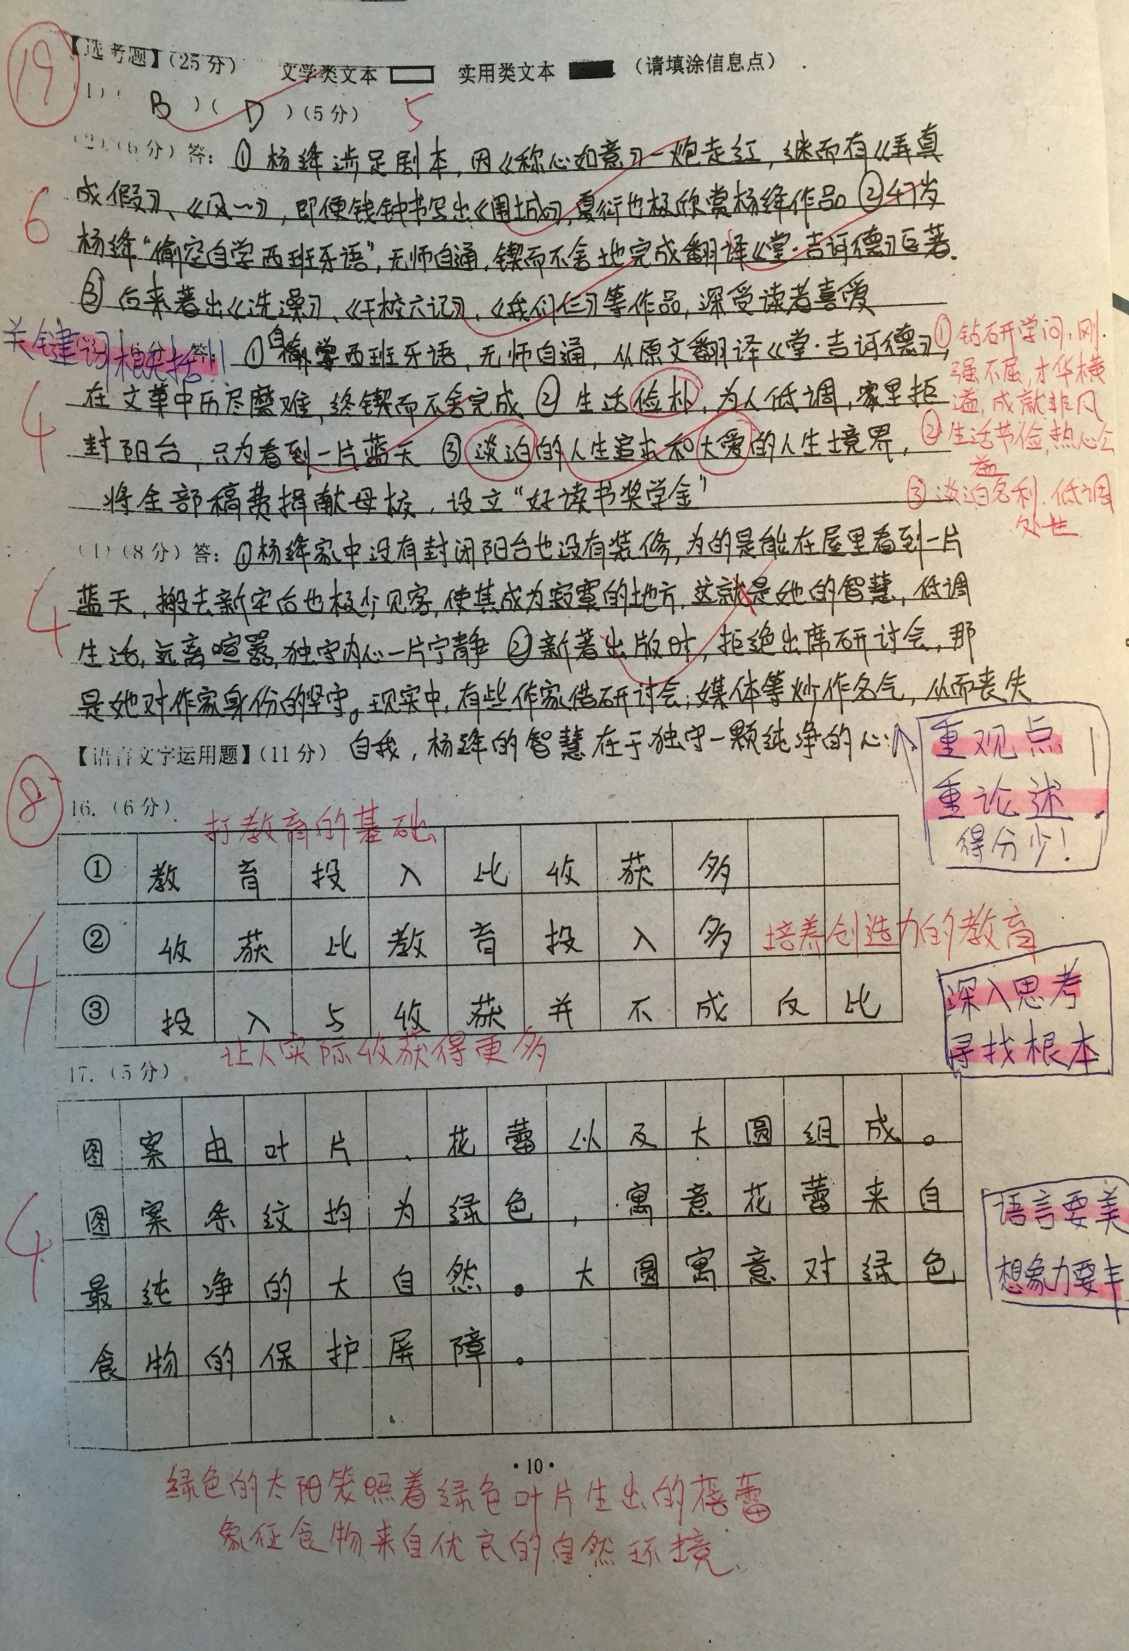 19
【选考题】（25分） 文学类文本 实用类文本 （请填涂信息点）
（1）（ B ）（ D ）（5分） 5
（2）（6分）答：①杨绛涉足剧本，因《称心如意》一炮走红，继而有《弄真
成假》、《风……》，即便钱钟书写出《围城》，夏衍也极欣赏杨绛作品 ②47岁
6
杨绛“偷空自学西班牙语”，无师自通，锲而不舍地完成翻译《堂·吉诃德》巨著。
③ 后来著出《洗澡》、《干校六记》、《我们仨》等作品，深受读者喜爱
关键词概括！
答：①自学西班牙语，无师自通，从原文翻译《堂·吉诃德》，
在文革中历尽磨难，终锲而不舍完成 ② 生活俭朴，为人低调，家里拒
4
封阳台，只为看到一片蓝天 ③淡泊的人生追求和大爱的人生境界，
将全部稿费捐献母校，设立“好读书奖学金”
①钻研学问，刚
强不屈，才华横
溢，成就非凡
②生活节俭，热心公
益
③淡泊名利，低调
处世
（4）（8分）答：①杨绛家中没有封闭阳台也没有装修，为的是能在屋里看到一片
蓝天，搬去新宅后也极少见客，使其成为寂寞的地方，这就是她的智慧，低调
4
生活，远离喧嚣，独守内心一片宁静 ②新著出版时，拒绝出席研讨会，那
是她对作家身份的坚守。现实中，有些作家借研讨会，媒体等炒作名气，从而丧失
自我，杨绛的智慧在于独守一颗纯净的心
重观点
重论述
得分少！
【语言文字运用题】（11分）
8
16.（6分）
打教育的基础
① 教育投入比收获多
② 收获比教育投入多
培养创造力的教育
4
③ 投入与收获并不成反比
让人实际收获得更多
深入思考
寻找根本
17.（5分）
图案由叶片、花蕾以及大圆组成。
图案条纹均为绿色，寓意花蕾来自
4
最纯净的大自然。大圆寓意对绿色
食物的保护屏障。
语言要美
想象力要丰
·10·
绿色的太阳笼照着绿色叶片生出的蓓蕾
象征食物来自优良的自然环境.